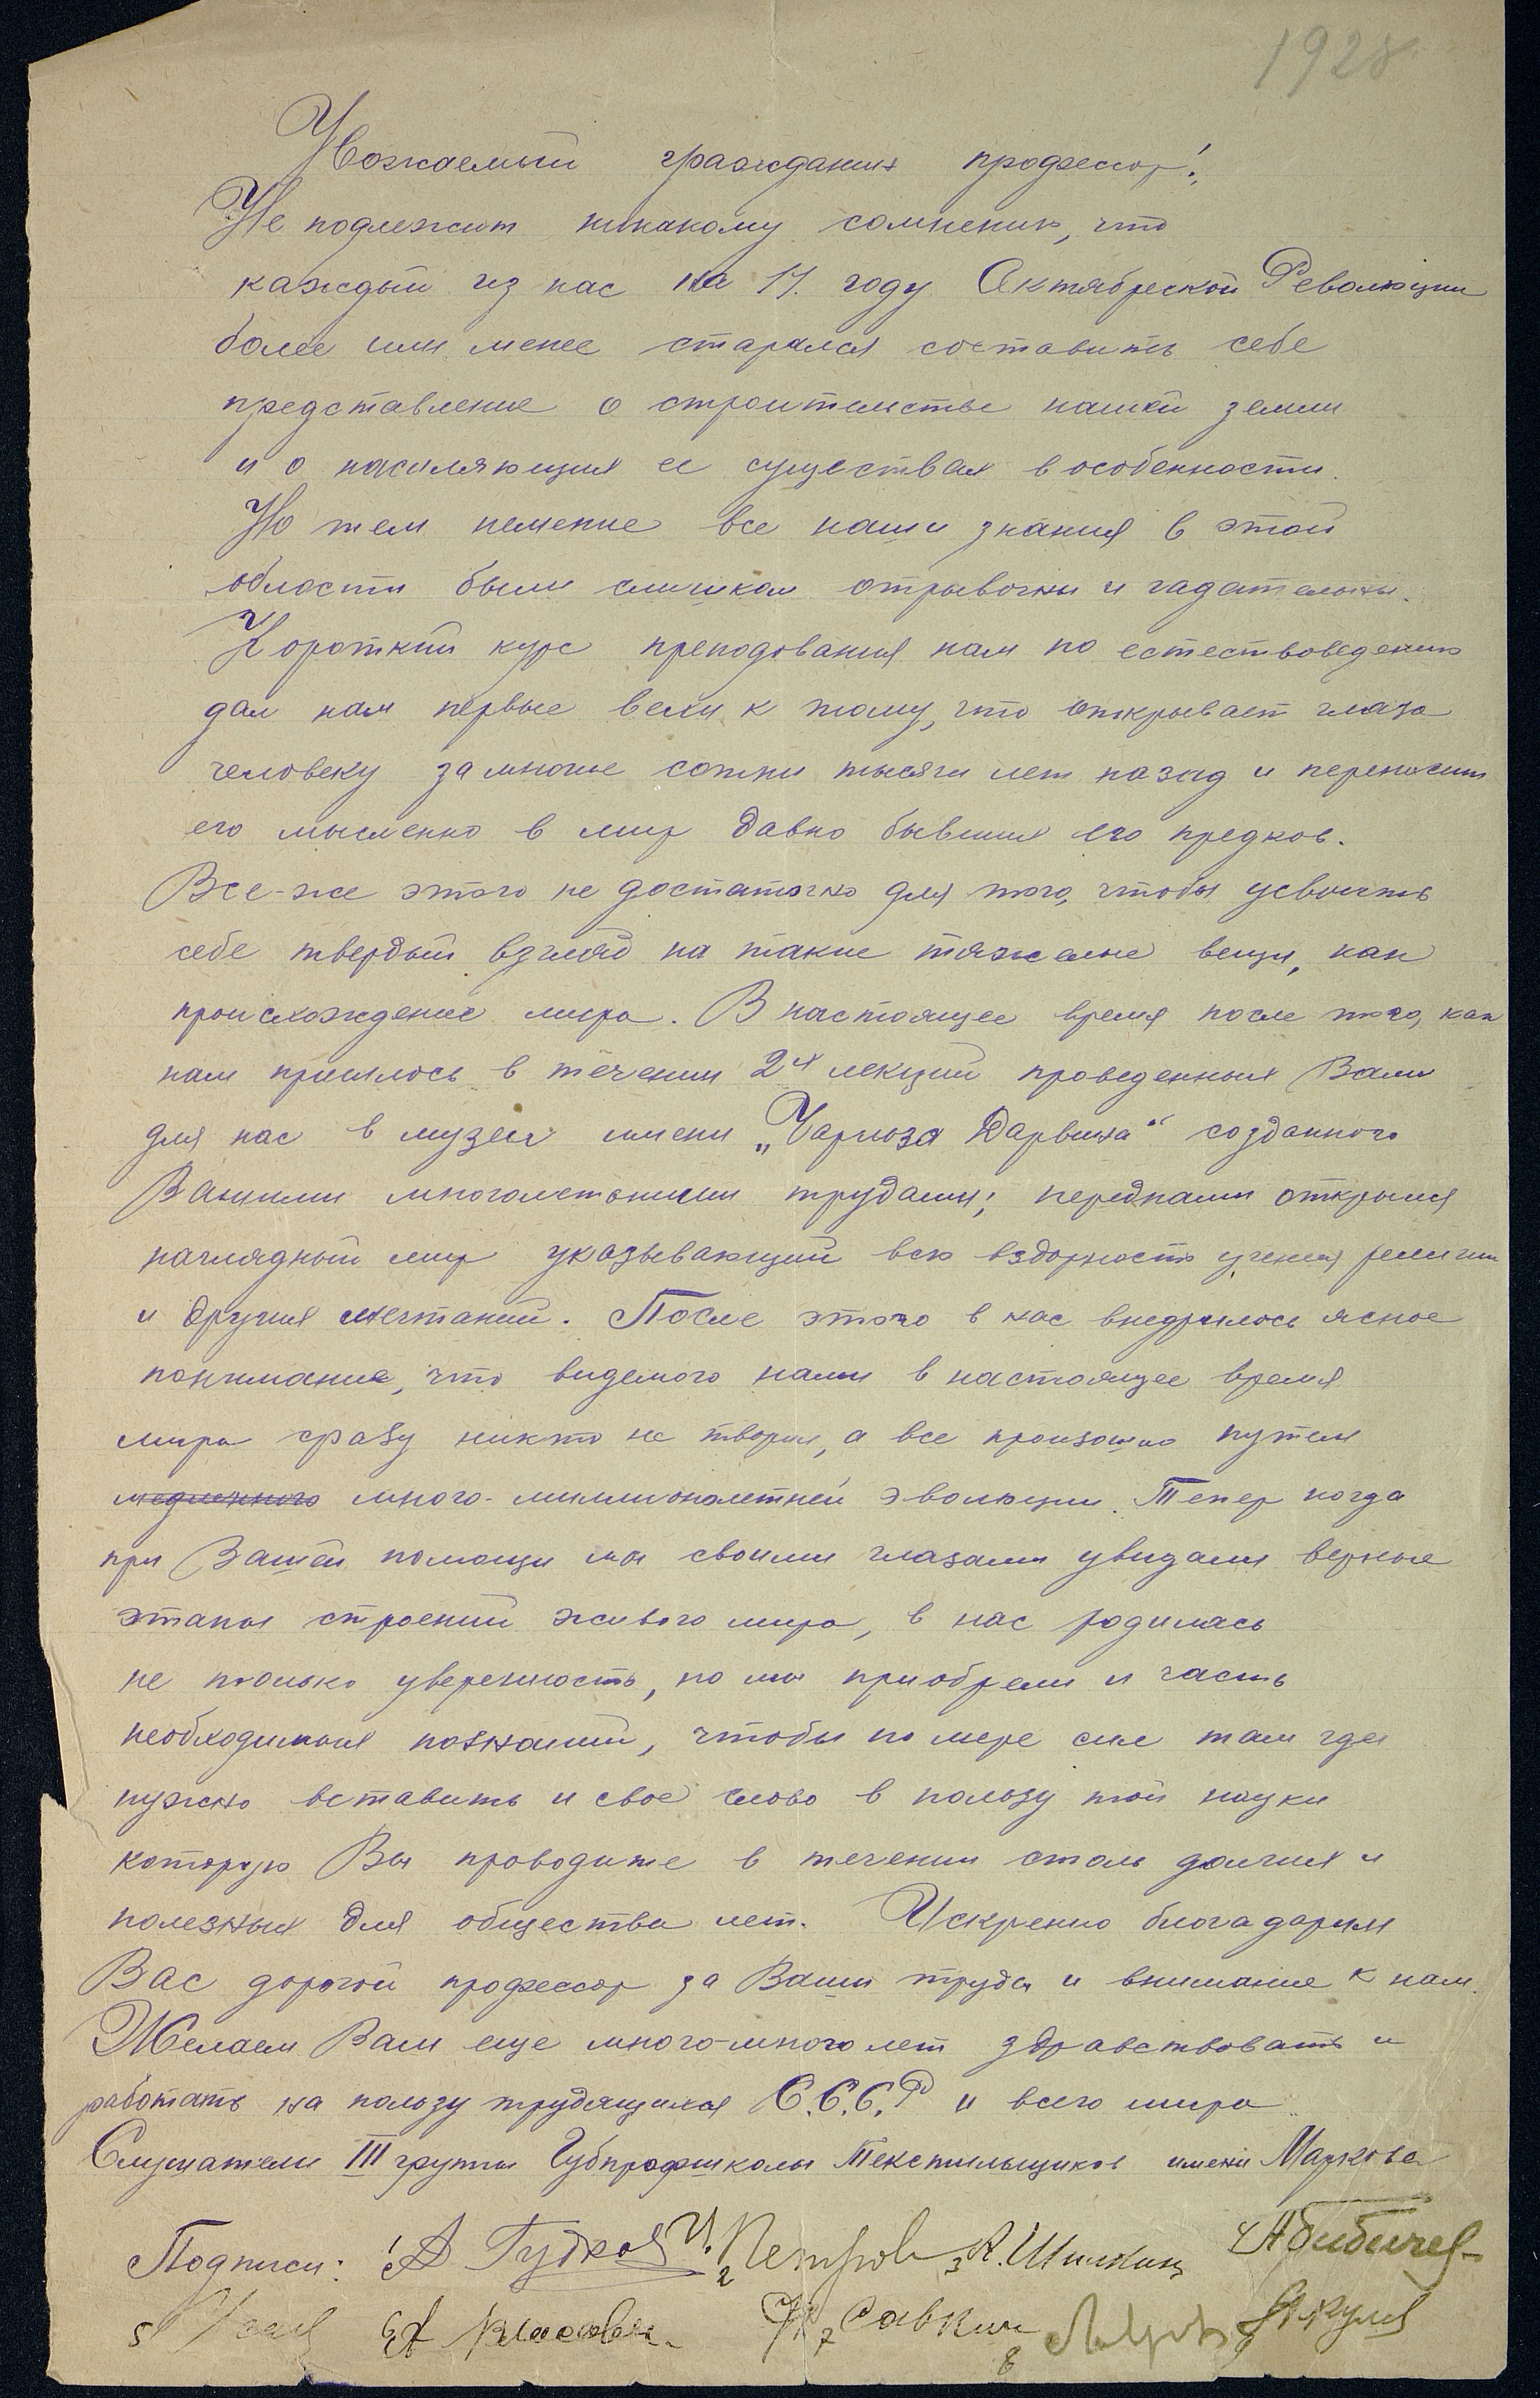 1928
Уважаемый гражданин профессор!
Не подлежит никакому сомнению, что
каждый из нас на 11. году Октябрьской Революции
более или менее старался составить себе
представление о строительстве нашей земли
и о населяющих ее существах в особенности.
Но тем неменее все наши знания в этой
области были слишком отрывочны и гадательны.
Короткий курс преподования нам по естествоведению
дал нам первые вехи к тому, что открывает глаза
человеку за многие сотни тысячи лет назад и переносит
его мысленно в мир давно бывших его предков.
Все-же этого не достаточно для того, чтобы усвоить
себе твердый взгляд на такие тяжелые вещи, как
происхождение мира. В настоящее время после того, как
нам пришлось в течении 2х лекций проведенных Вами
для нас в музеи имени „Чарльза Дарвина“ созданного
Вашими многолетними трудами; переднами открылся
наглядный мир указывающий всю вздорность учения религии
и других мечтаний. После этого в нас внедрилось ясное
понимание, что видемого нами в настоящее время
мира сразу никто не творил, а все произошло путем
медленного много-миллионолетней эволюции. Тепер когда
при Вашей помощи мы своими глазами увидали верные
этапы строений живого мира, в нас родилась
не только уверенность, но мы приобрели и часть
необходимых познаний, чтобы по мере сил там где
нужно вставить и свое слово в пользу той науки
которую Вы проводите в течении столь долгих и
полезных для общества лет. Искренно благадарим
Вас дорогой профессор за Ваши труды и внимание к нам.
Желаем Вам еще много-много лет здравствовать и
работать на пользу трудящихся С.С.С.Р и всего мира
Слушатели III группы Губпрофшколы Текстильщиков имени Маркова
Подписи: 1 А Гудков 2 И. Петров 3 А. Шилкин 4 А Бибичев
5 6 А Власова 7 Н. Савкин 8 9 Якулов